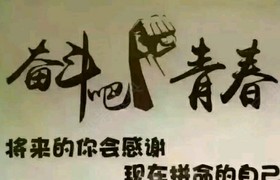 奋斗吧青春
将来的你会感谢
现在拼命的自己